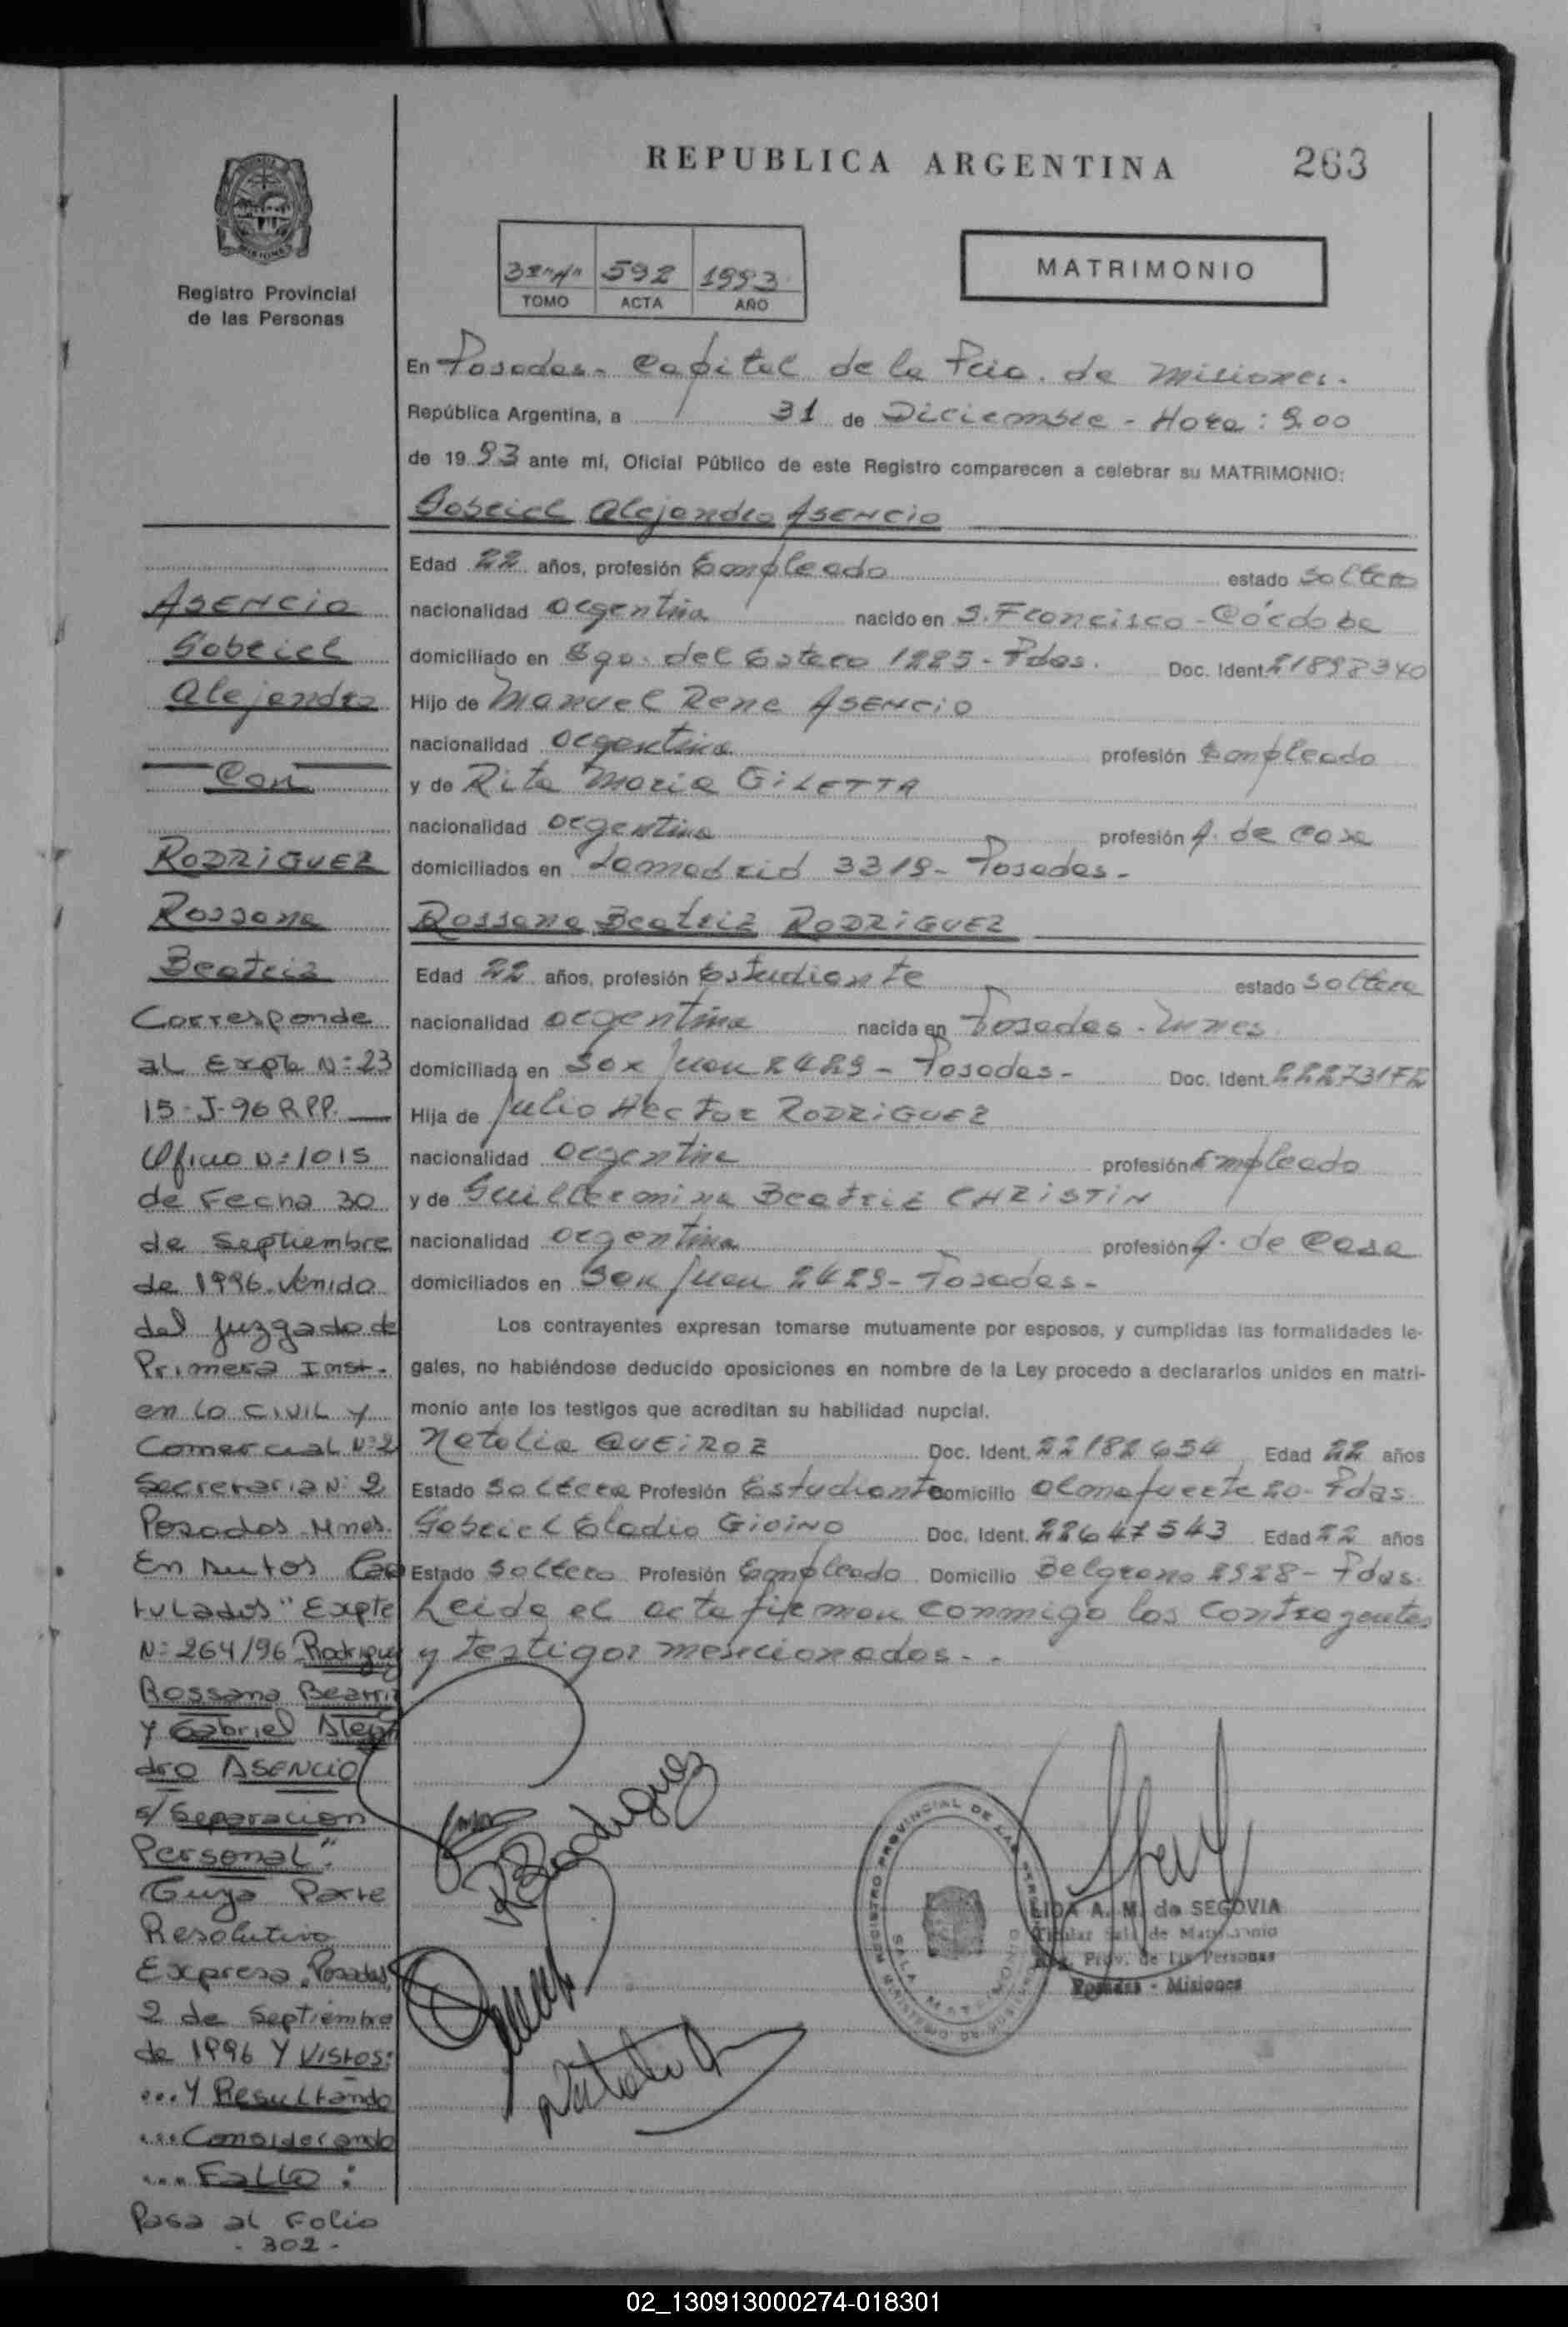 REPUBLICA ARGENTINA
263
Registro Provincial
de las Personas
592 1993
TOMO ACTA AÑO
MATRIMONIO
En Posadas - Capital de la Pcia. de Misiones.
República Argentina, a 31 de Diciembre - Hora: 9.00
de 1993 ante mí, Oficial Público de este Registro comparecen a celebrar su MATRIMONIO:
Gabriel Alejandro ASENCIO
Edad 22 años, profesión Empleado estado soltero
nacionalidad argentina nacido en S. Francisco - Córdoba
domiciliado en Sgo. del Estero 1225 - Pdas. Doc. Ident. 21898340
Hijo de Manuel Rene ASENCIO
nacionalidad argentina profesión Empleado
y de Rita Maria GILETTA
nacionalidad argentina profesión A. de casa
domiciliados en Lamadrid 3319 - Posadas -
Rossana Beatriz RODRIGUEZ
Edad 22 años, profesión Estudiante estado soltera
nacionalidad argentina nacida en Posadas - Mnes
domiciliada en San Juan 2429 - Posadas - Doc. Ident.
Hija de Julio Hector RODRIGUEZ
nacionalidad argentina profesión Empleado
y de Guillermina Beatriz CHRISTIN
nacionalidad argentina profesión A. de Casa
domiciliados en San Juan 2429 - Posadas -
Los contrayentes expresan tomarse mutuamente por esposos, y cumplidas las formalidades le-
gales, no habiéndose deducido oposiciones en nombre de la Ley procedo a declararlos unidos en matri-
monio ante los testigos que acreditan su habilidad nupcial.
Natalia QUEIROZ Doc. Ident. 22182654 Edad 22 años
Estado Soltera Profesión Estudiante Domicilio Almafuerte 20 - Pdas.
Gabriel Eladio GIOINO Doc. Ident. 22647543 Edad 22 años
Estado Soltero Profesión Empleado Domicilio Belgrano 2928 - Pdas.
Leida el acta firman conmigo los contrayentes
y testigos mencionados - .
ASENCIO
Gabriel
Alejandro
Con
RODRIGUEZ
Rossana
Beatriz
Corresponde
al Expte N: 23
15-J-96 RPP.
Oficio N: 1015
de Fecha 30
de Septiembre
de 1996 Venido
del Juzgado de
Primera Inst.
en lo CIVIL y
Comercial N: 2
Secretaria N: 2
Posadas Mnes.
En Autos Ca
tulados "Expte
N: 264/96 Rodriguez
Rossana Beatriz
y Gabriel Alejan
dro ASENCIO
s/ Separacion
Personal".
Cuya Parte
Resolutiva
Expresa, Posadas,
2 de Septiembre
de 1996 Y Vistos:
...Y Resultando
...Considerando
...FALLO:
Pasa al Folio
- 302 -
RBRodriguez
Natalia
REGISTRO PROVINCIAL DE LAS PERSONAS
SALA MATRIMONIO
LIDA A. M. de SEGOVIA
Titular Sala de Matrimonio
Reg. Prov. de las Personas
Posadas - Misiones
02_130913000274-018301